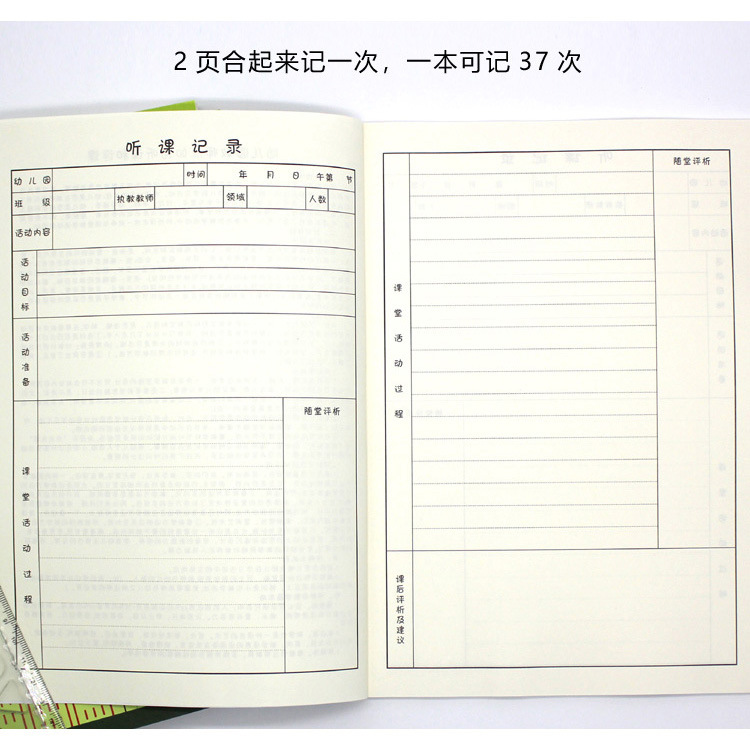 2页合起来记一次，一本可记37次
听课记录
幼儿园 时间 年 月 日 午第 节
班级 执教教师 领域 人数
活动内容
活动目标
活动准备
课堂活动过程
随堂评析
随堂评析
课堂活动过程
课后评析及建议